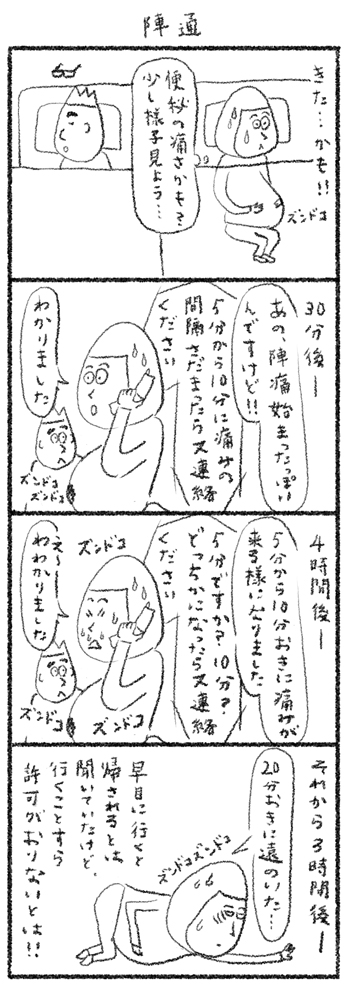 陣通
きた…かも!!
ズンドコ
便秘の痛さかも?
少し様子見よう…
30分後ー
あの、陣痛始まったっぽい
んですけど!!
5分から10分に痛みの
間隔さだまったら又連絡
ください
わかりました
ズンドコ
ズンドコ
4時間後ー
5分から10分おきに痛みが
来る様になりました
5分ですか?10分?
どっちかになったら又連絡
ください
ズンドコ
え〜
わわかりました
ズンドコ
ズンドコ
それから3時間後ー
20分おきに遠のいた…
ズンドコズンドコ
早目に行くと
帰されるとは
聞いていたけど、
行くことすら
許可がおりないとは!!